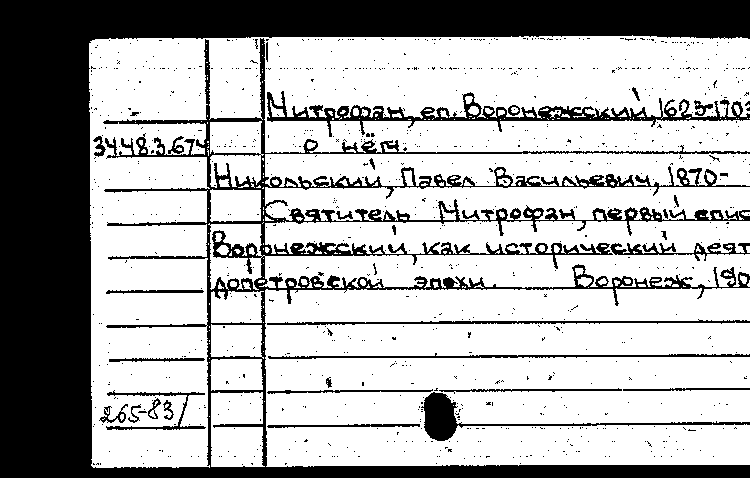 Митрофан, еп. Воронежсский, 1623-1703
34.48.3.674 о нём.
Никольский, Павел Васильевич, 1870-
Святитель Митрофан, первый епис
Воронежсский, как исторический деят
допетровской эпохи. Воронеж, 190
265-83/